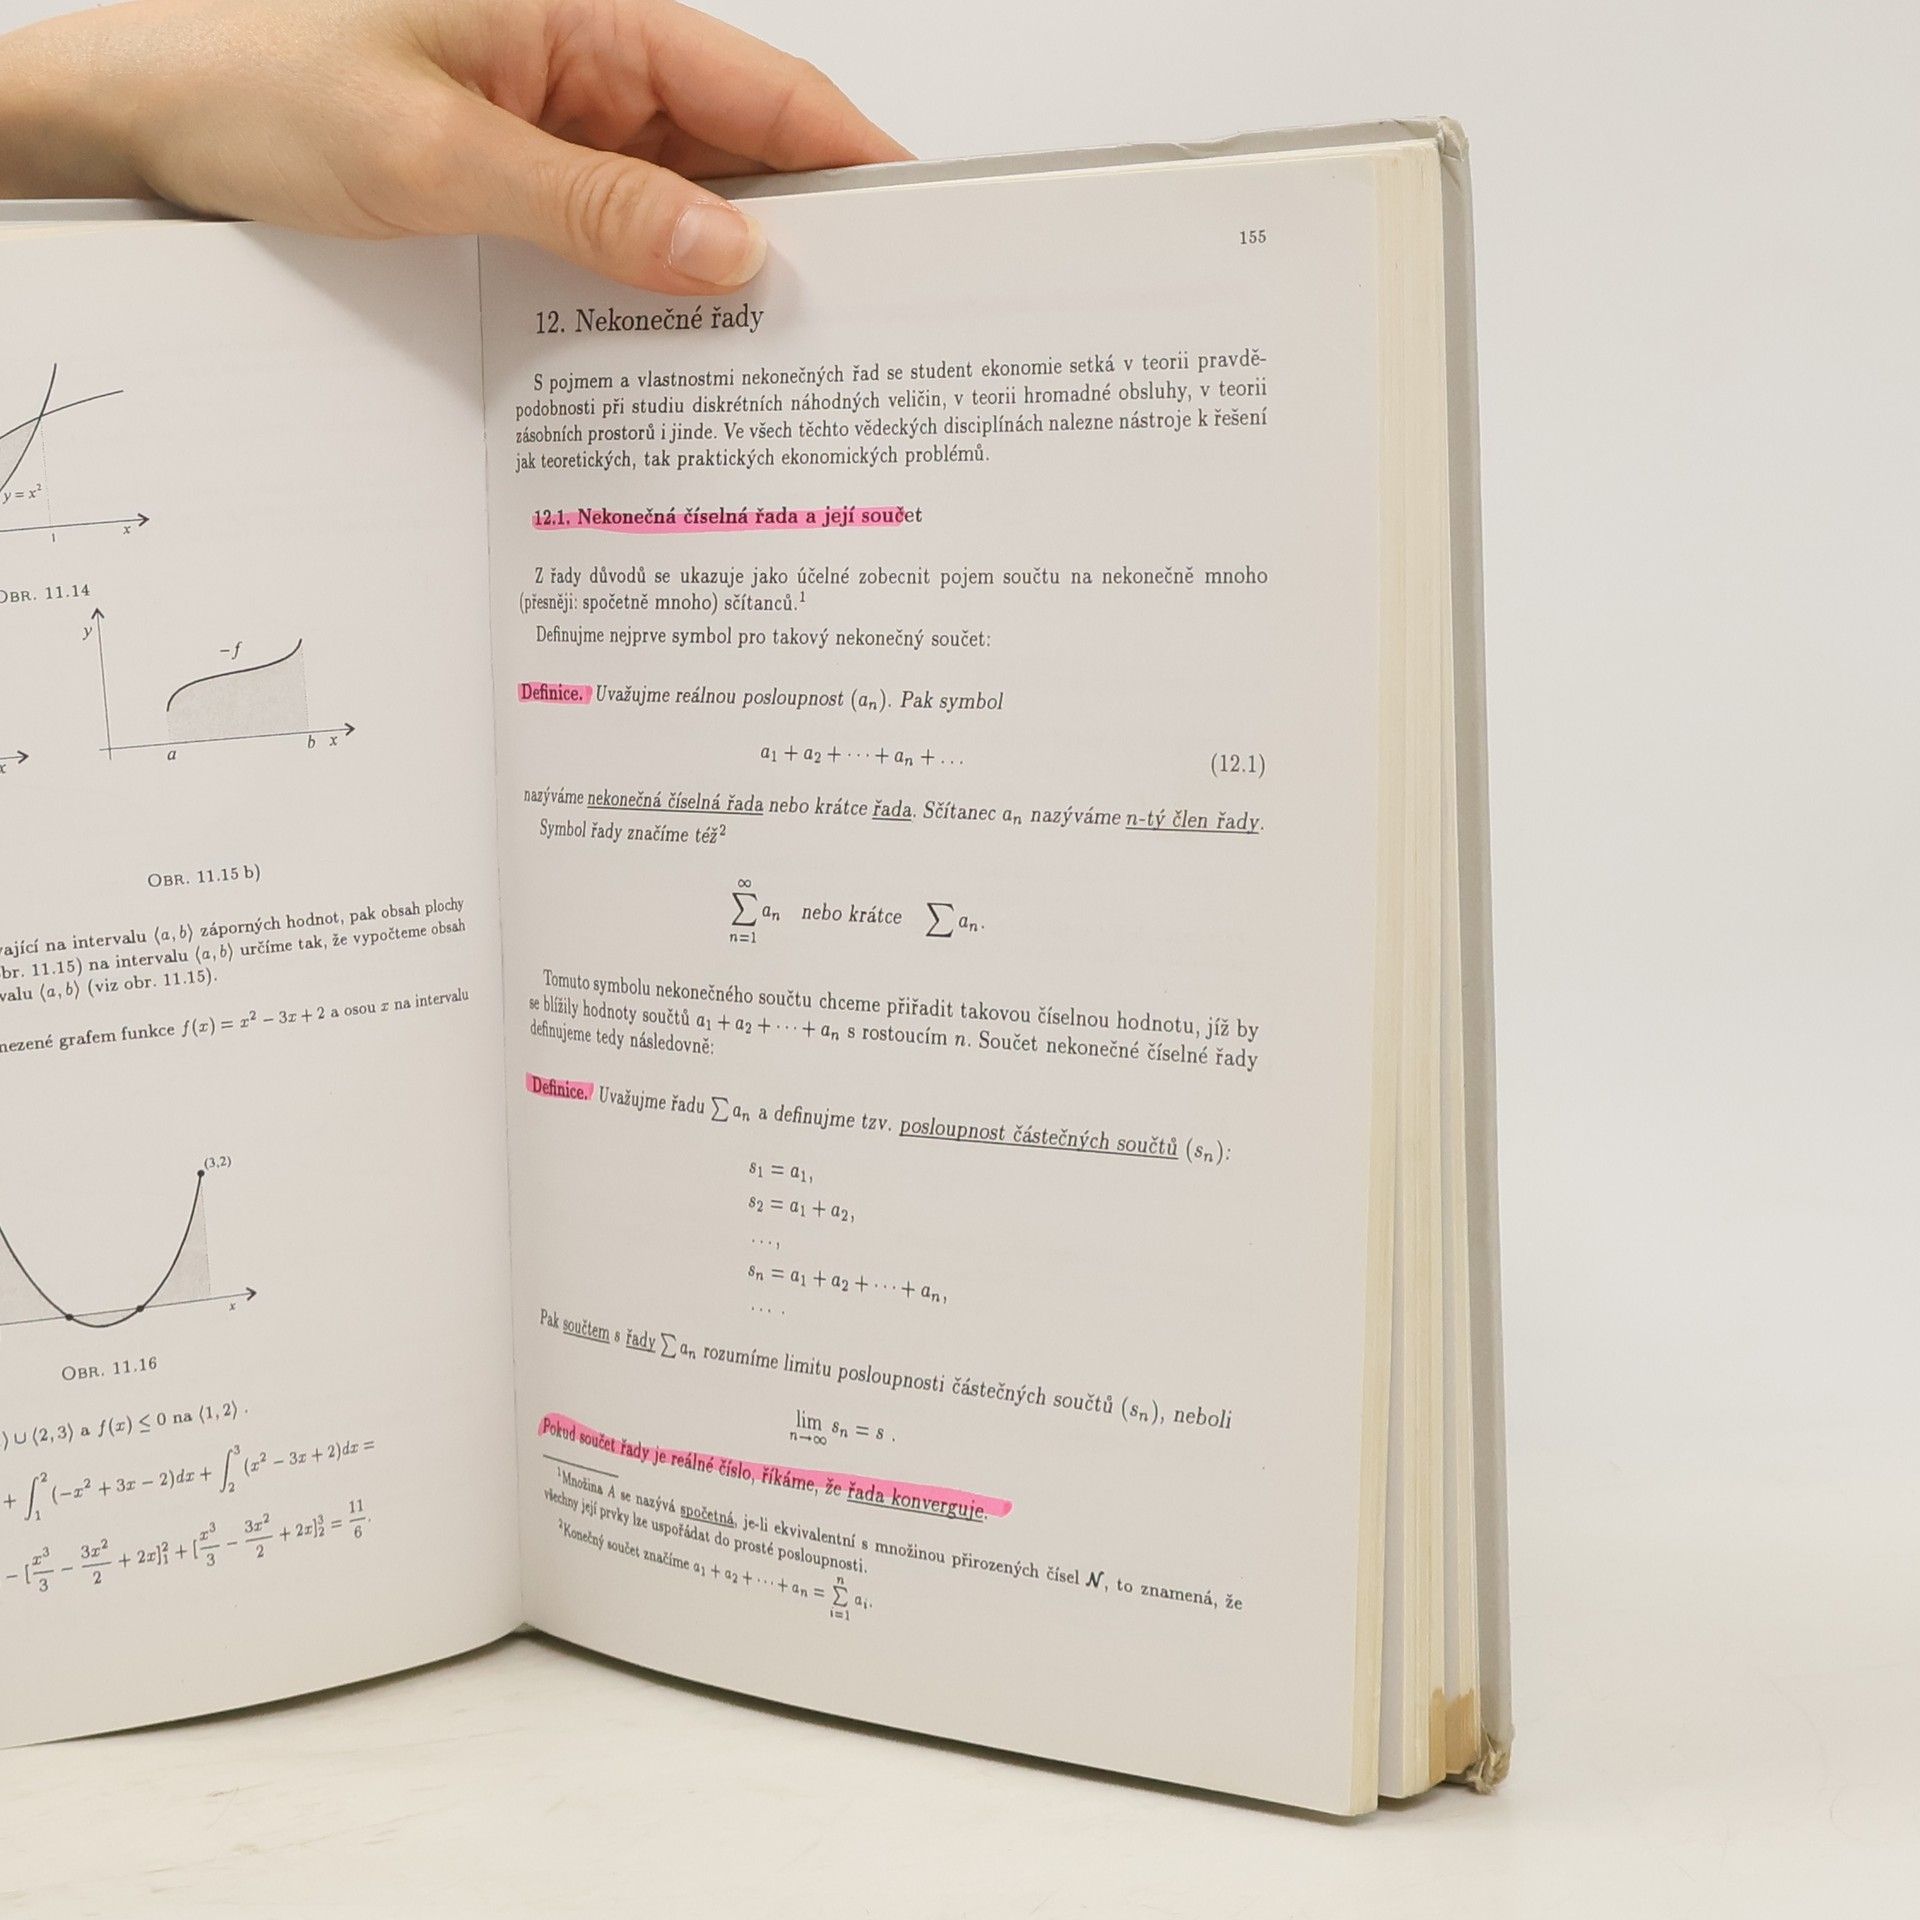 y = x²
1
x
OBR. 11.14
y
−f
a
b
x
x
OBR. 11.15 b)
na intervalu ⟨a, b⟩ záporných hodnot, pak obsah plochy
obr. 11.15) na intervalu ⟨a, b⟩ určíme tak, že vypočteme obsah
⟨a, b⟩ (viz obr. 11.15).
grafem funkce f(x) = x² − 3x + 2 a osou x na intervalu
(3,2)
x
OBR. 11.16
) ∪ ⟨2, 3⟩ a f(x) ≤ 0 na ⟨1, 2⟩ .
+ ∫₁² (−x² + 3x − 2)dx + ∫₂³ (x² − 3x + 2)dx =
− [x³/3 − 3x²/2 + 2x]₁² + [x³/3 − 3x²/2 + 2x]₂³ = 11/6.
155
12. Nekonečné řady
S pojmem a vlastnostmi nekonečných řad se student ekonomie setká v teorii pravdě-
podobnosti při studiu diskrétních náhodných veličin, v teorii hromadné obsluhy, v teorii
zásobních prostorů i jinde. Ve všech těchto vědeckých disciplínách nalezne nástroje k řešení
jak teoretických, tak praktických ekonomických problémů.
12.1. Nekonečná číselná řada a její součet
Z řady důvodů se ukazuje jako účelné zobecnit pojem součtu na nekonečně mnoho
(přesněji: spočetně mnoho) sčítanců.¹
Definujme nejprve symbol pro takový nekonečný součet:
Definice. Uvažujme reálnou posloupnost (aₙ). Pak symbol
a₁ + a₂ + ⋯ + aₙ + … (12.1)
nazýváme nekonečná číselná řada nebo krátce řada. Sčítanec aₙ nazýváme n-tý člen řady.
Symbol řady značíme též²
∑_{n=1}^{∞} aₙ nebo krátce ∑ aₙ.
Tomuto symbolu nekonečného součtu chceme přiřadit takovou číselnou hodnotu, jíž by
se blížily hodnoty součtů a₁ + a₂ + ⋯ + aₙ s rostoucím n. Součet nekonečné číselné řady
definujeme tedy následovně:
Definice. Uvažujme řadu ∑ aₙ a definujme tzv. posloupnost částečných součtů (sₙ):
s₁ = a₁,
s₂ = a₁ + a₂,
…,
sₙ = a₁ + a₂ + ⋯ + aₙ,
… .
Pak součtem s řady ∑ aₙ rozumíme limitu posloupnosti částečných součtů (sₙ), neboli
lim_{n→∞} sₙ = s .
Pokud součet řady je reálné číslo, říkáme, že řada konverguje.
¹Množina A se nazývá spočetná, je-li ekvivalentní s množinou přirozených čísel 𝒩, to znamená, že
všechny její prvky lze uspořádat do prosté posloupnosti.
²Konečný součet značíme a₁ + a₂ + ⋯ + aₙ = ∑_{i=1}^{n} aᵢ.